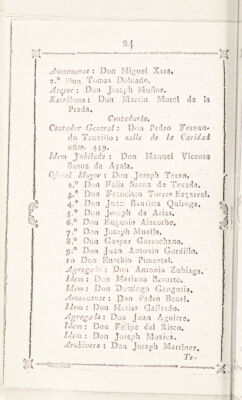 24
Amanuense: Don Miguel Xara.
2.º Don Tomas Doblado.
Asesor: Don Joseph Muñoz.
Escribano: Don Martin Morel de la
Prada.
Contaduría.
Contador General: Don Pedro Fernan-
do Truxillo: calle de la Caridad
núm. 459.
Idem Jubilado: Don Manuel Vicente
Saenz de Ayala.
Oficial Mayor: Don Joseph Teran.
2.º Don Feliz Saenz de Texada.
3.º Don Francisco Torres Esquivel.
4.º Don Juan Bautista Quiroga.
5.º Don Joseph de Arias.
6.º Don Eugenio Aizcorbe.
7.º Don Joseph Muella.
8.º Don Gaspar
9.º Don Juan Antonio Gordillo.
10 Don Eusebio Pimentel.
Agregado: Don Antonio Zubiaga.
Idem: Don Mariano
Idem: Don Domingo
Amanuense: Don Pedro
Idem: Don Matias Gallardo.
Agregado: Don Juan Aguirre.
Idem: Don Felipe del Risco.
Idem: Don Joseph
Archivero: Don Joseph Martinez.
Te-